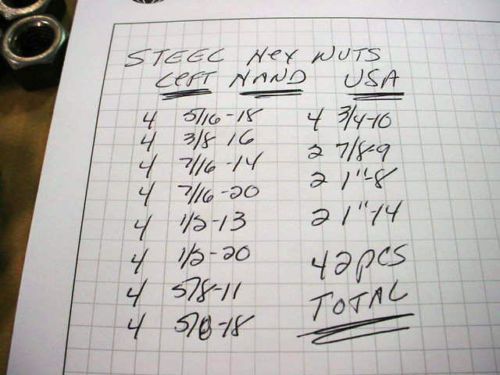 STEEL HEX NUTS
LEFT HAND USA
4 5/16-18
4 3/8 16
4 7/16-14
4 7/16-20
4 1/2-13
4 1/2-20
4 5/8-11
4 5/8-18
4 3/4-10
2 7/8-9
2 1"-8
2 1"-14
42 PCS
TOTAL